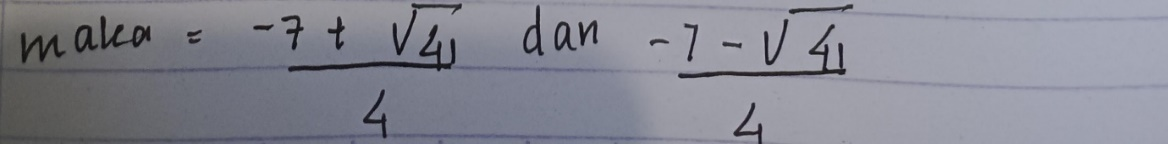 maka = -7 + √41 dan -7 - √41
4 4